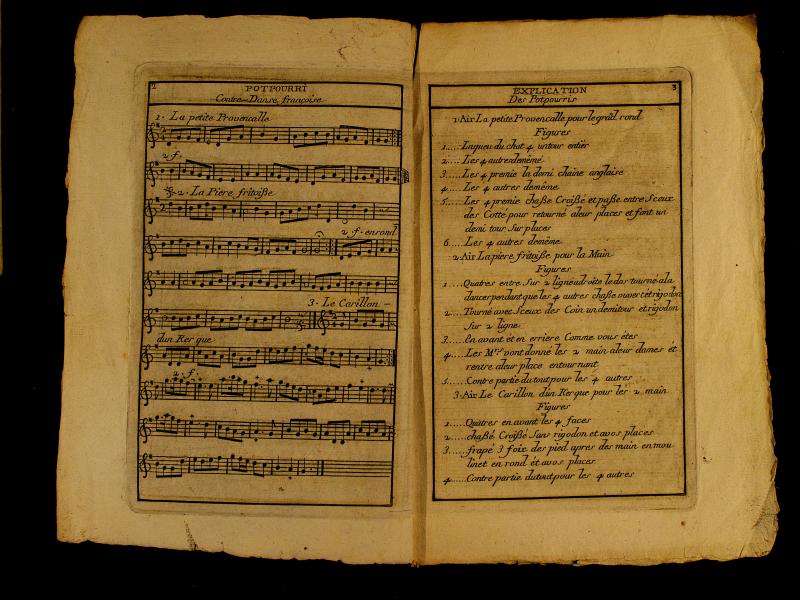 2
POTPOURRI
Contre-Danse françoise
1. La petite Provencalle
2 f.
2. La Piere fritoiße
2 f. en sond
3. Le Carillon -
dun Kerque
2. f.
EXPLICATION
3
Des Potpourris
1. Air La petite Provencalle pour le grād rond
Figures
1.... La queu du chat 4 un tour entiér
2.... Les 4 autres demême
3.... Les 4 premie la demi chaine anglaise
4.... Les 4 autres demême
5.... Les 4 premie chaße Croißé et paße entre Sceux
des Cotté pour retourné aleur places et font un
demi tour Sur places
6.... Les 4 autres demême
2. Air La piere fritoiße pour la Main
Figures
1.... Quatres entre Sur 2 ligne adroite le dos tourné a la
dancer pendant que les 4 autres chaße ouvert et rigodon
2.... Tourné avec Sceux des Coin un demitour et rigodon
Sur 2 ligne
3.... En avant et en erriere Comme vous êtes
4.... Les M.rs vont donné les 2 main aleur dames et
rentre aleur place en tournant
5.... Contre partie du tout pour les 4 autres
3. Air Le Carillon dun Kerque pour les 2 main
Figures
1.... Quatres en avant les 4 faces
2.... chaßé Croißé Sans rigodon et avos places
3.... frapé 3 foix des pied apres des main en mou
linet en rond et avos places
4.... Contre partie du tout pour les 4 autres